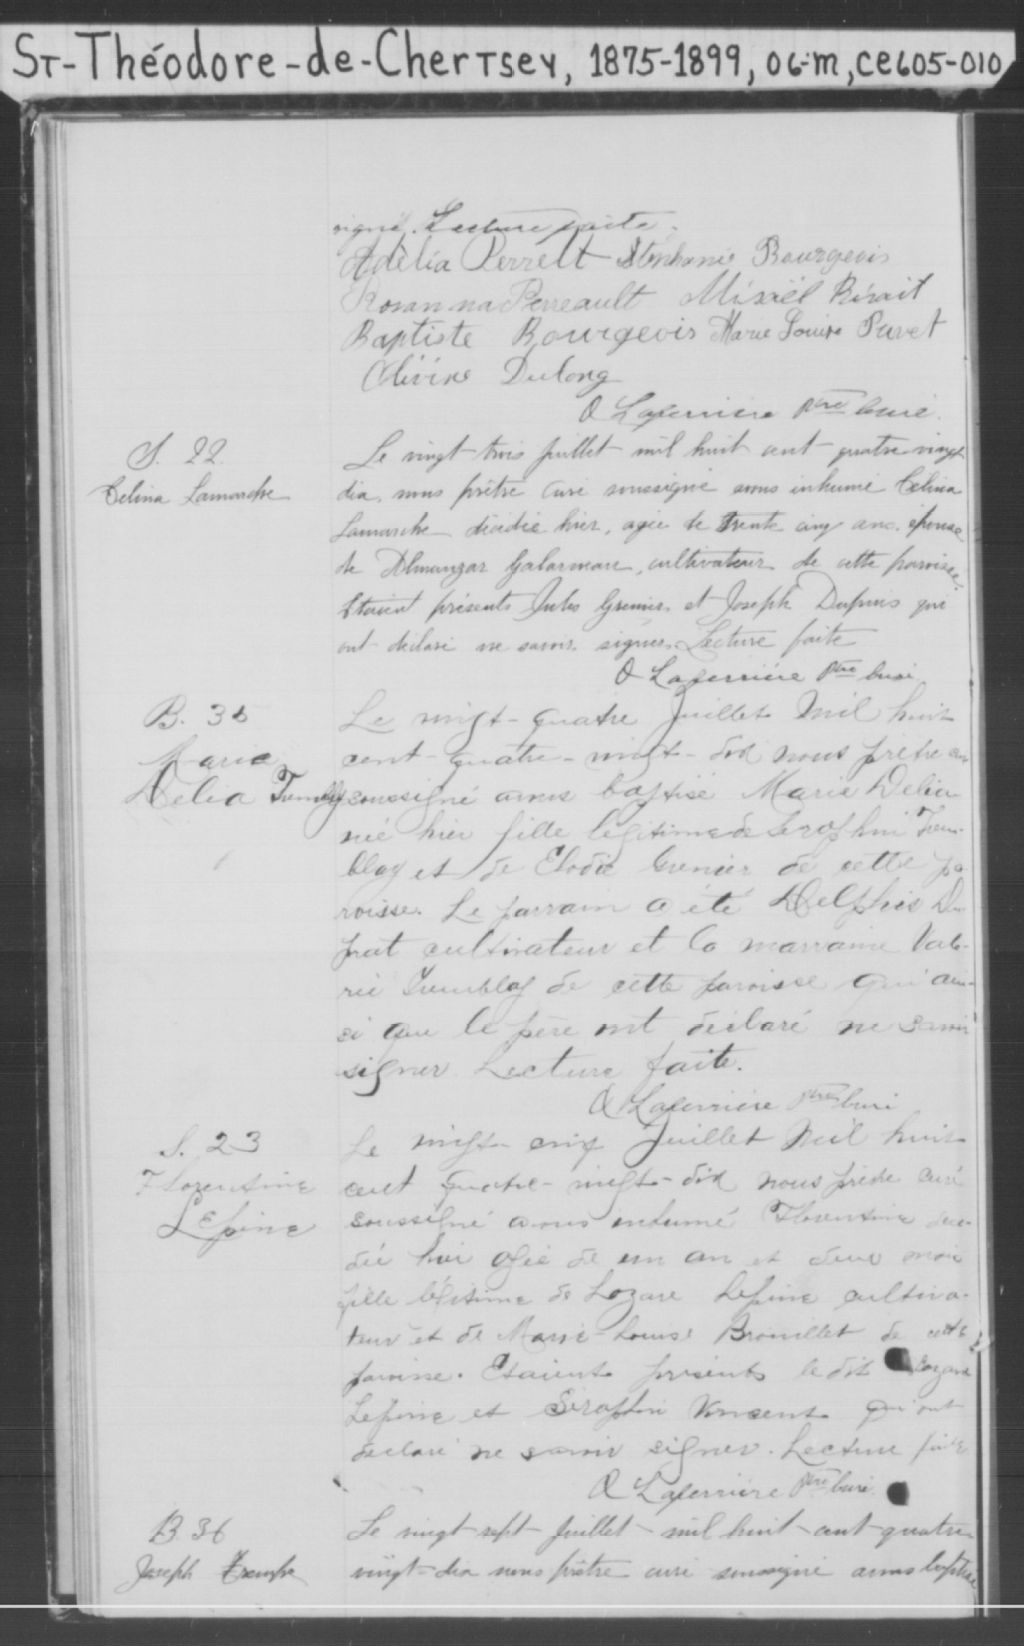 ST-Théodore-de-Chertsey, 1875-1899, 06-m, CE605-010
signé. Lecture faite.
Adèlia Perrelt Stéphanie Bourgeois
Rosanna Perreault Misaël
Baptiste Bourgeois Marie Louise
Olivine Dulong
O Laferrière Ptre Curé.
S. 22.
Celina Lamarche
Le vingt-trois juillet mil huit cent quatre-vingt
dix, nous prêtre curé soussigné avons inhumé Celina
Lamarche décédée hier, agée de trente cinq ans, épouse
de Almanzar Galarneau, cultivateur de cette paroisse.
Etaient présents Jules Grenier et Joseph Dupuis qui
ont déclaré ne savoir signer. Lecture faite
O Laferrière Ptre Curé
B. 35
Maria
Delia Tremblay
Le vingt-quatre Juillet Mil huit
cent-quatre-vingt-dix nous prêtre curé
soussigné avons baptisé Marie Delia
née hier fille légitime de Seraphin Trem-
blay et de Elodie Grenier de cette pa-
roisse. Le parrain a été Delphis Du-
prat cultivateur et la marraine Vale-
rie Tremblay de cette paroisse qui ain-
si que le père ont déclaré ne savoir
signer Lecture faite.
O Laferrière Ptre Curé
S. 23
Florentine
Lépine
Le vingt-cinq Juillet Mil huit
cent quatre-vingt-dix nous prêtre curé
soussigné avons inhumé Florentine décé-
dée hier agée de un an et deux mois
fille légitime de Lozare Lepine cultiva-
teur et de Marie-Louise Brouillet de cette
paroisse. Etaient présents le dit Lozare
Lepine et Séraphin Vincent qui ont
déclaré ne savoir signer. Lecture faite
O Laferrière Ptre Curé.
B 36
Joseph
Le vingt-sept Juillet mil huit cent quatre-
vingt-dix nous prêtre curé soussigné avons baptisé